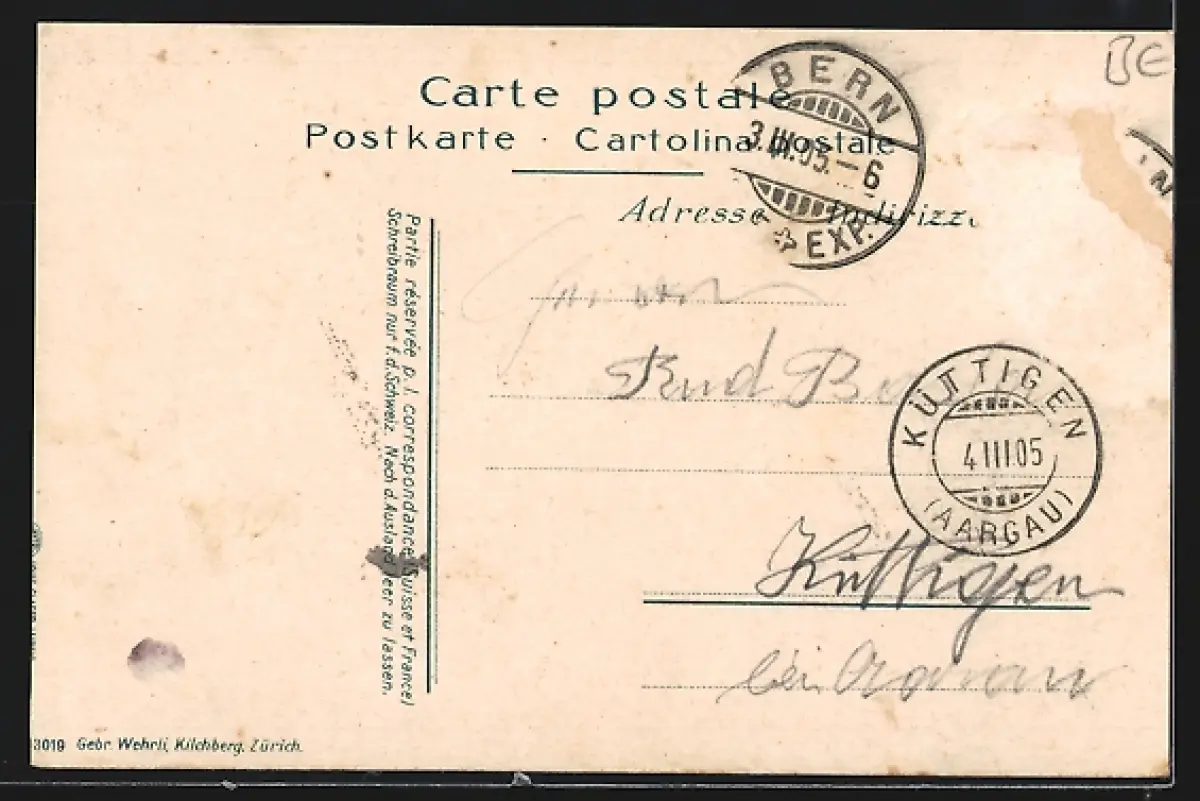 Carte postale
Postkarte · Cartolina postale
Adresse Indirizz
BERN
3.III.05.–6
EXP.
BE
Partie réservée p. l. correspondance (Suisse et France)
Schreibraum nur f. d. Schweiz. Nach d. Ausland leer zu lassen.
KÜTTIGEN
4 III 05
(AARGAU)
Küttigen
bei Aarau
3019 Gebr. Wehrli, Kilchberg, Zürich.